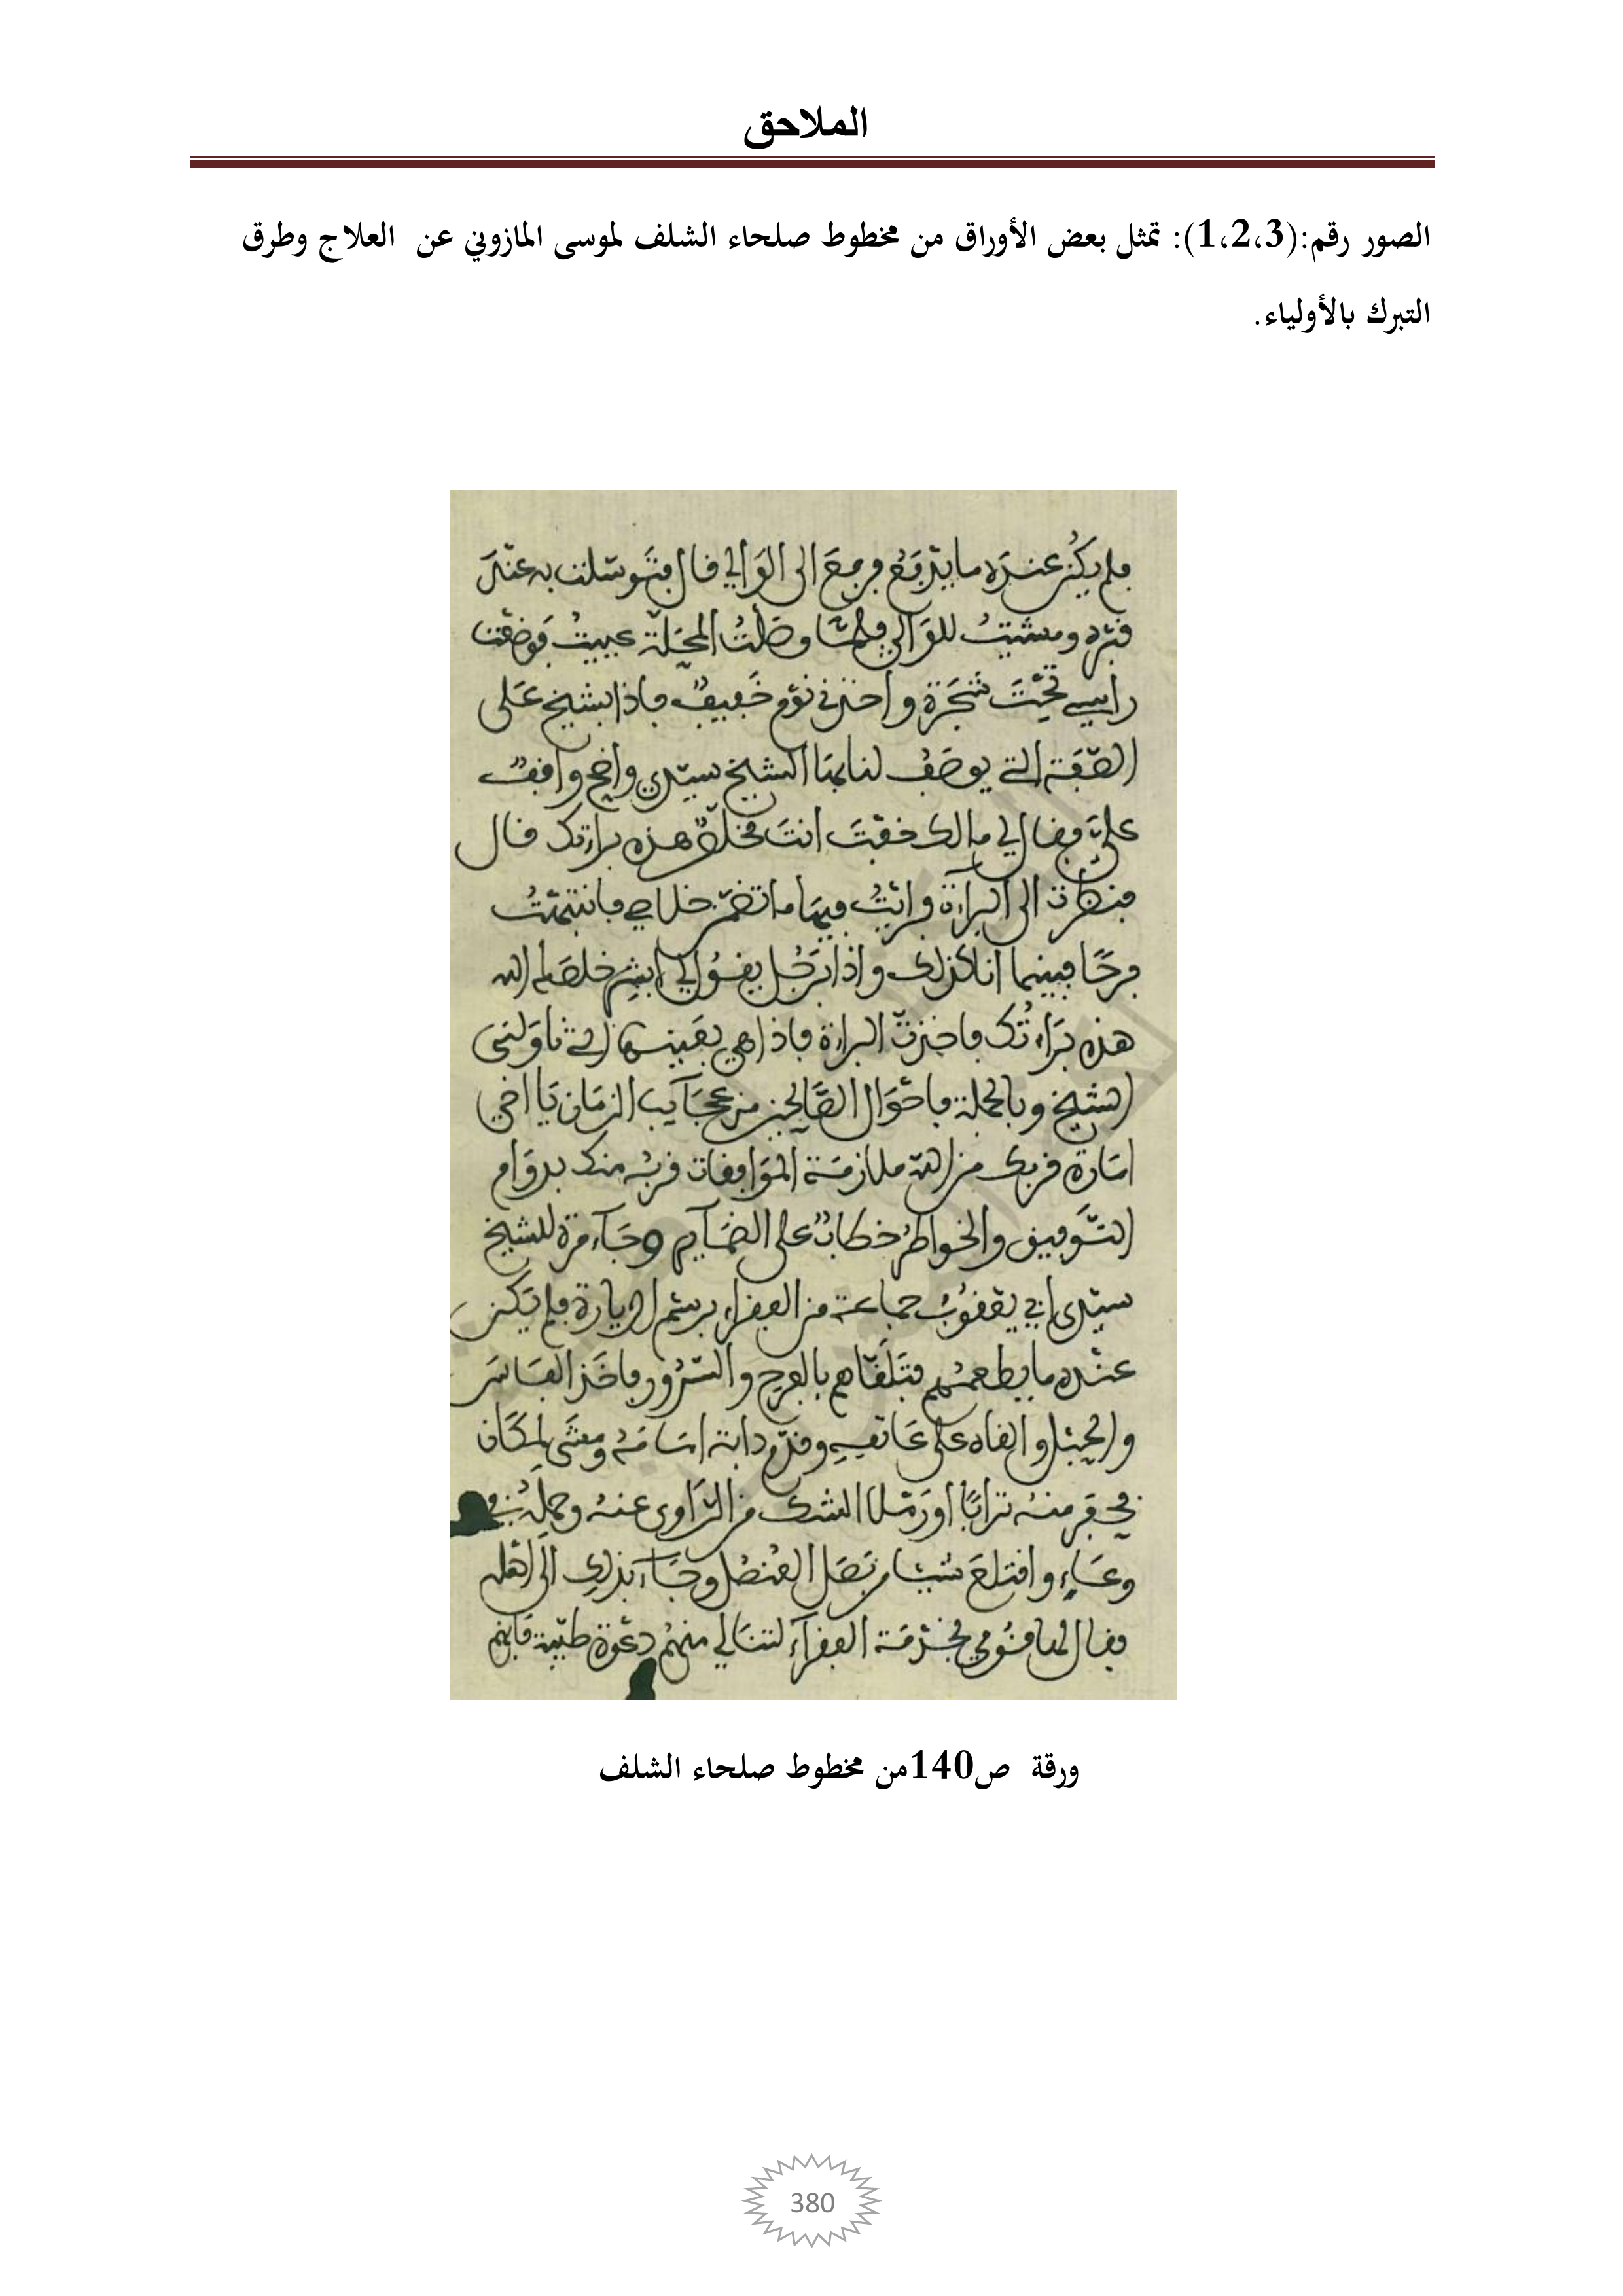 الملاحق
الصور رقم:(1،2،3): تمثل بعض الأوراق من مخطوط صلحاء الشلف لموسى المازوني عن العلاج وطرق
التبرك بالأولياء.
فلم يكن عنده ما يدفع فرجع الى الوالي قال فتوسلت به عند
قبره ومشيتُ للوالي فلما وصلتُ المحلة عييتُ فوضعت
راسي تحت شجرة واخذني نوم خفيف فاذا بشيخ على
الصفة التي يوصف لنا بها الشيخ سيدي واضح واقف
علي فقال لي مالك خفت انت مخلص هذه براتك قال
فنظرت الى البراءة فرايتُ فيها ما تضمن خلاصي فانتبهتُ
فرحًا فبينما انا كذلك واذا برجل يقول لي ابشر خلصك الله
هذه براءتك فاخذت البراءة فاذا هي بعينها التي ناولني
الشيخ وبالجملة فاحوال الصالحين من عجايب الزمان يا اخي
امارة قربك من الله ملازمة الموافقات قربه منك بدوام
التوفيق والخواطر خطاب على الضماير وجاء مرة للشيخ
سيدي ابي يعقوب جماعة من الفقراء برسم الزيارة فلم يكن
عنده ما يطعمهم فتلقاهم بالفرح والسرور فاخذ الفاس
والحبل والقاه على عاتقه وقدم دابته امامه ومشى لمكان
فحفر منه ترابًا او رملا الشك من الراوي عنه وحمله في
وعاء واقتلع شيئا من بصل العنصل وجاء بذلك الى اهله
فقال لها قومي بخدمة الفقراء لتنالي منهم دعوة طيبة فانهم
ورقة ص140من مخطوط صلحاء الشلف
380